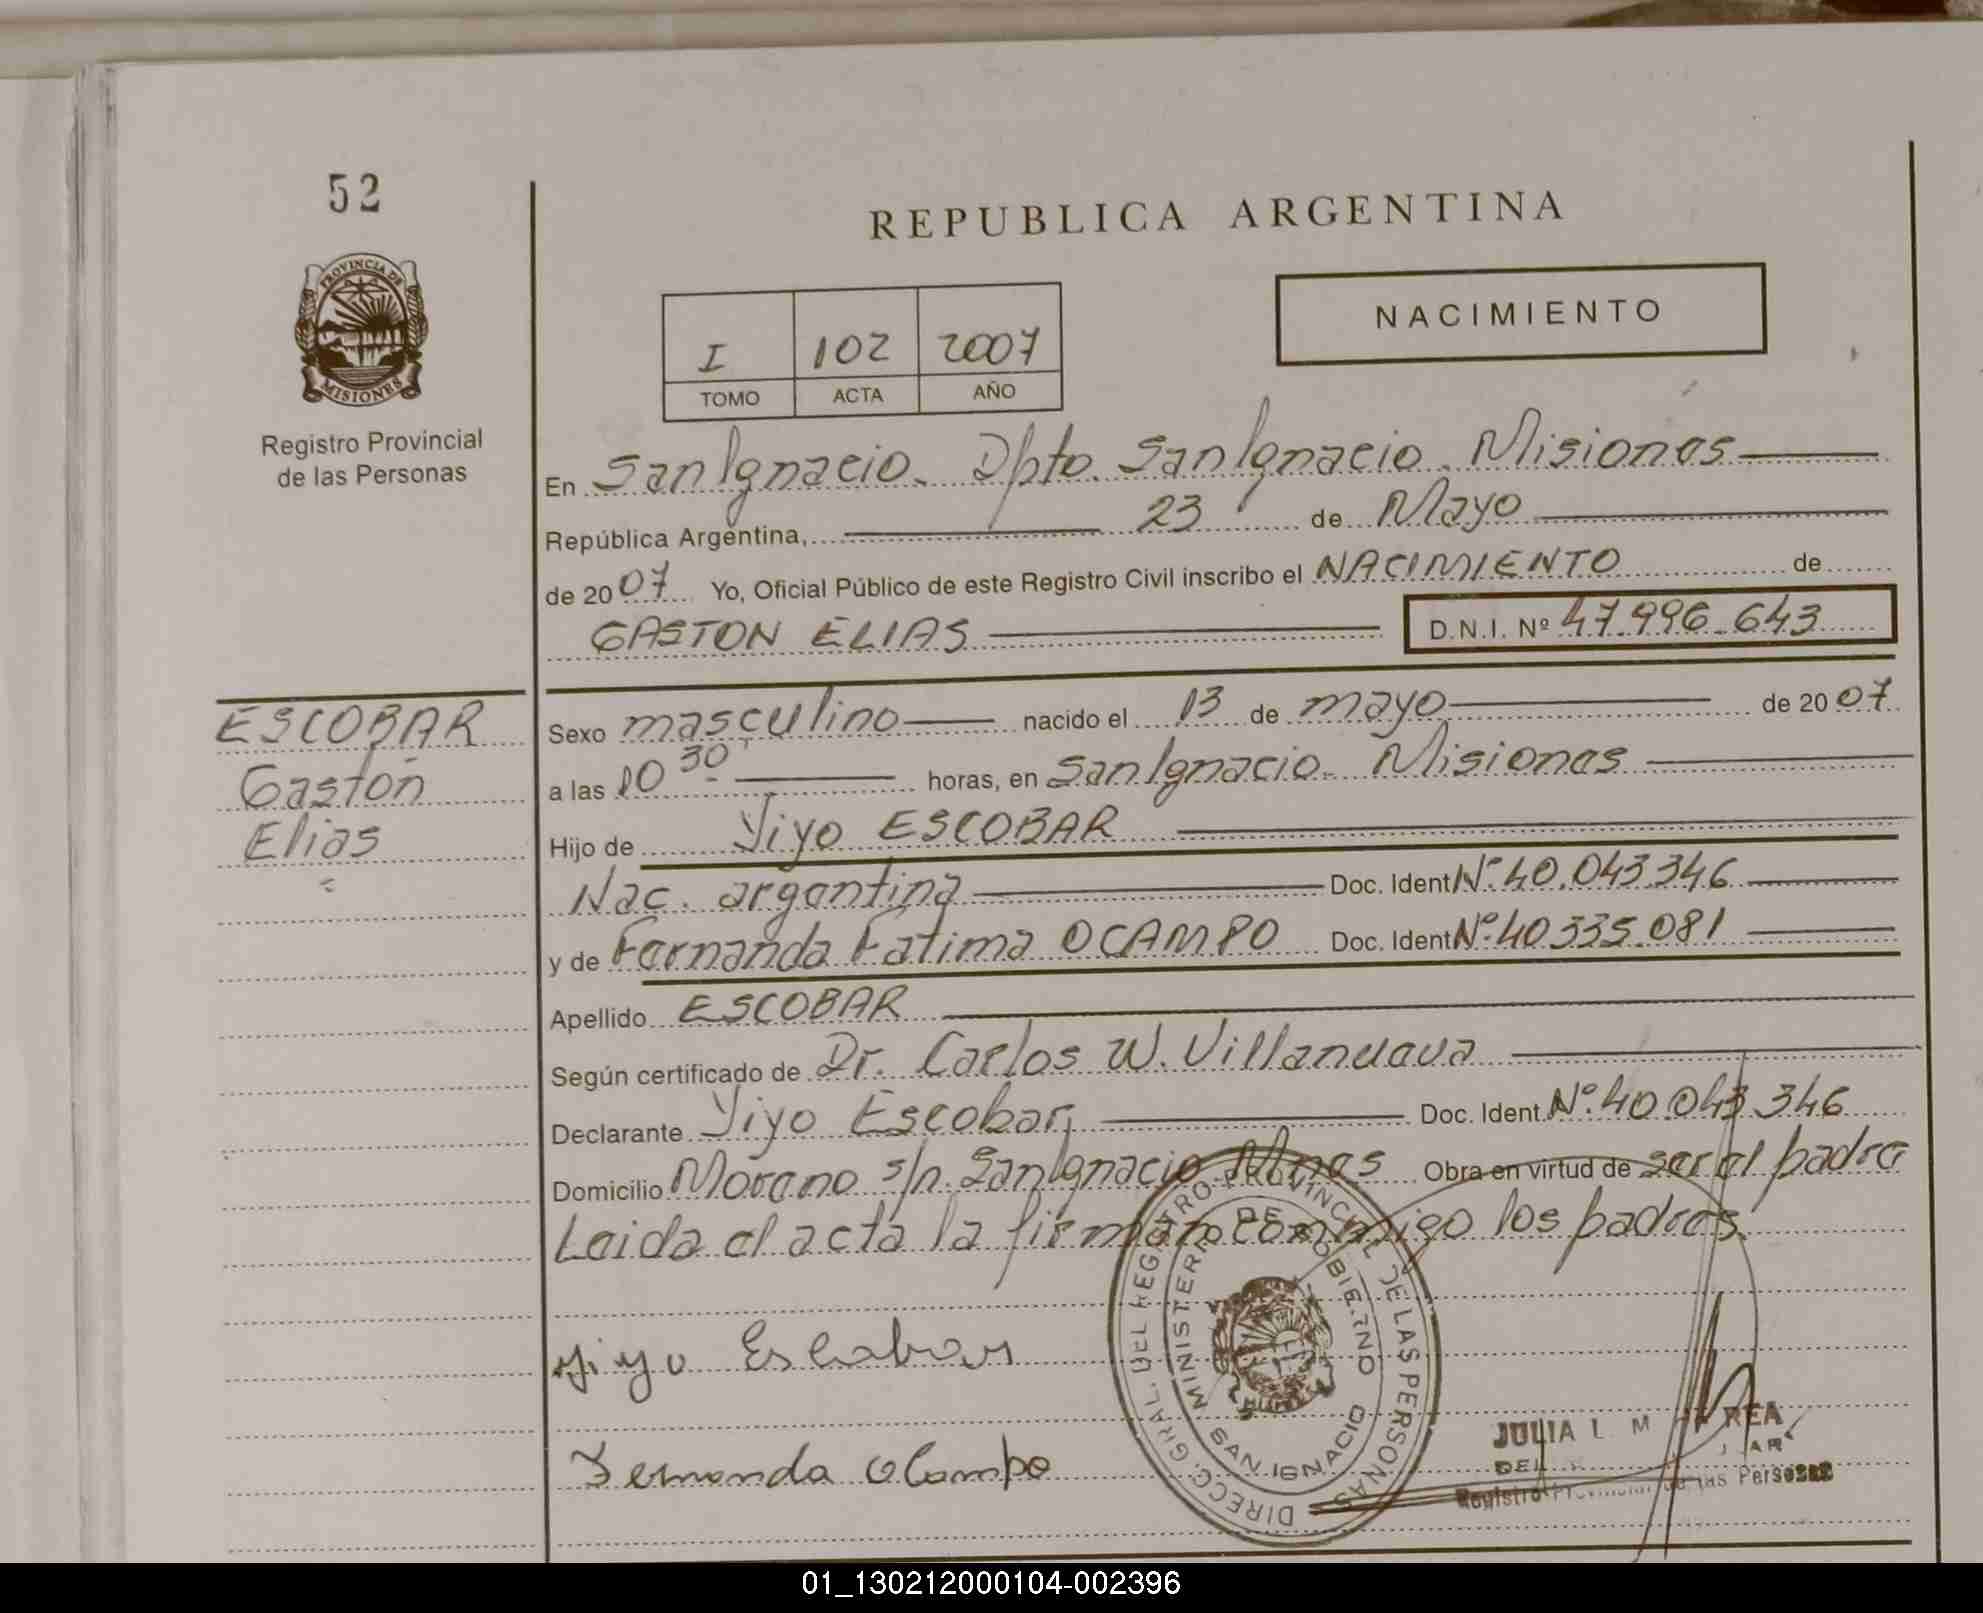 52
PROVINCIA DE
MISIONES
Registro Provincial
de las Personas
REPUBLICA ARGENTINA
NACIMIENTO
I 102 2007
TOMO ACTA AÑO
En San Ignacio. Dpto. San Ignacio. Misiones
República Argentina, 23 de Mayo
de 2007 Yo, Oficial Público de este Registro Civil inscribo el NACIMIENTO de
GASTON ELIAS D.N.I. Nº 47.996.643
ESCOBAR
Gastón
Elias
Sexo masculino nacido el 13 de mayo de 2007
a las 10 30 horas, en San Ignacio. Misiones
Hijo de Yiyo ESCOBAR
Nac. argentina Doc. Ident Nº. 40.043.346
y de Fernanda Fatima OCAMPO Doc. Ident Nº. 40.335.081
Apellido ESCOBAR
Según certificado de Dr. Carlos W. Villanueva
Declarante Yiyo Escobar, Doc. Ident. Nº. 40.043.346
Domicilio Moreno s/n. San Ignacio Mnes Obra en virtud de ser el padre
Leida el acta la firman conmigo los padres.
Yiyo Escobar
Fernanda Ocampo
DIRECC. GRAL. DEL REGISTRO PROVINCIAL DE LAS PERSONAS
MINISTERIO DE GOBIERNO
SAN IGNACIO
JULIA L. M
Registro Provincial de las Personas
01_130212000104-002396